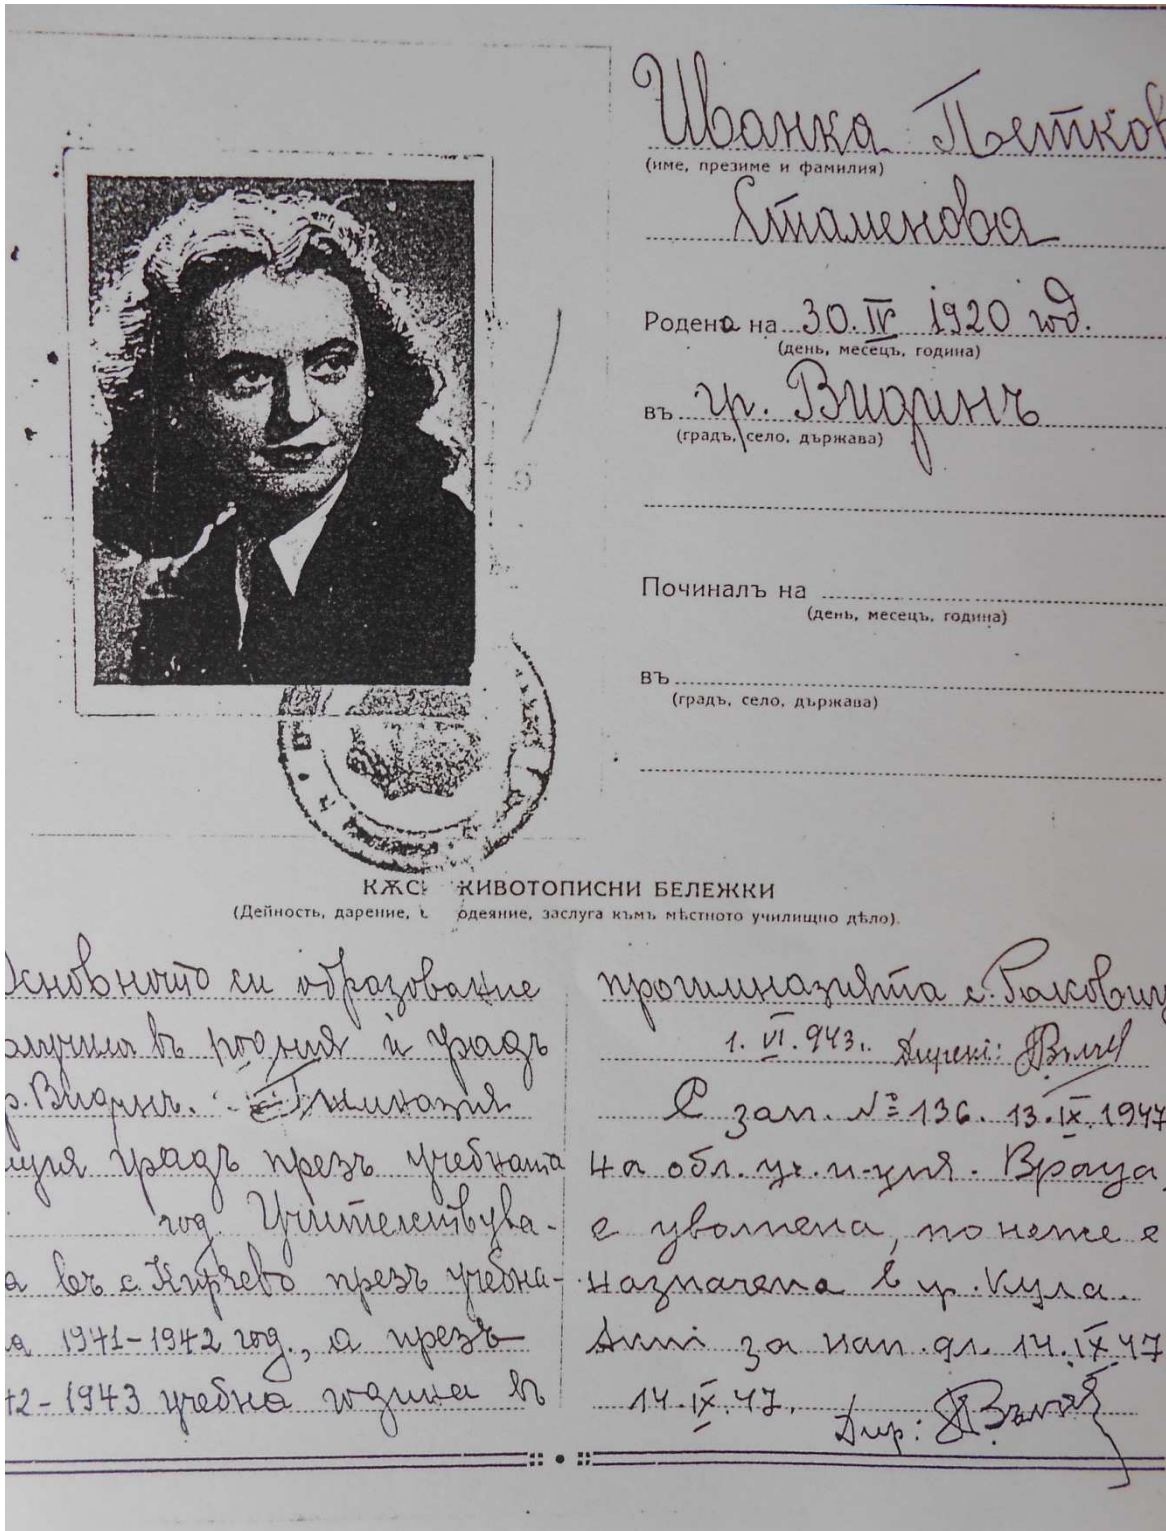 Иванка Петков
(име, презиме и фамилия)
Стаменова
Родена на 30. IV 1920 год.
(день, месецъ, година)
въ гр. Видинъ
(градъ, село, държава)
Починалъ на
(день, месецъ, година)
въ
(градъ, село, държава)
КѪС ЖИВОТОПИСНИ БЕЛЕЖКИ
(Дейность, дарение, одеяние, заслуга къмъ мѣстното училищно дѣло).
Основното си образование
олучила въ родния ѝ градъ
р. Видинъ. Гимназия
щия градъ презъ учебната
год. Учителствува-
а въ с. Киряево презъ учебна-
а 1941-1942 год., а презъ
42-1943 учебна година въ
прогимназията с. Раковиц
1. VI. 943. Дирек:
С зап. № 136. 13. IX. 1947
на обл. уч. и-ция. Враца,
е уволнена, понеже е
назначена в гр. Кула.
за нап. дл. 14. IX 47
14. IX. 47.
Дир: